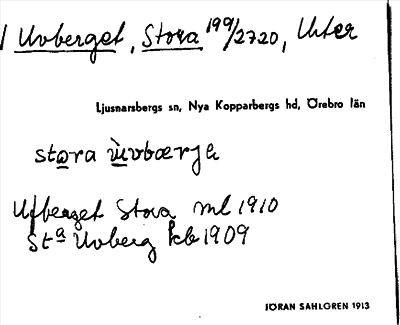 Uvberget, Stora 199/2720, Uter
Ljusnarsbergs sn, Nya Kopparbergs hd, Örebro län
stora ùvbærjə
Ufberget Stora ml 1910
St:a Uvberg kb 1909
JÖRAN SAHLGREN 1913